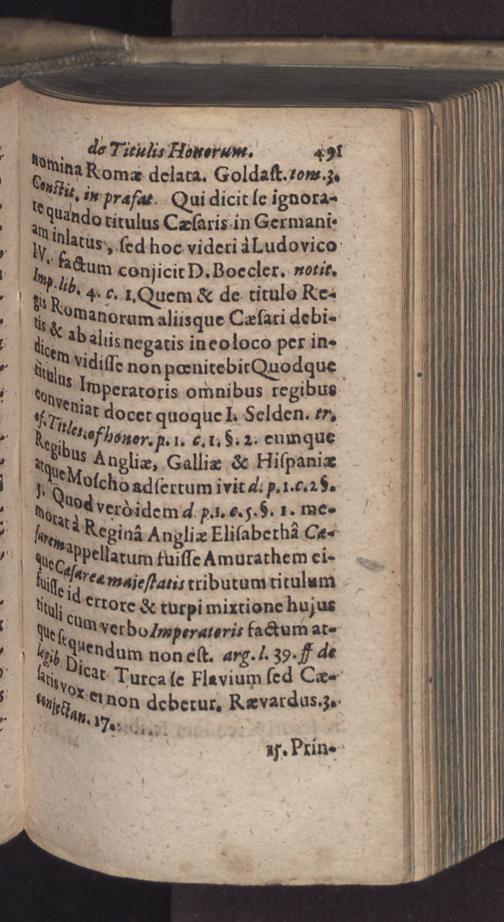 de Titulis Honorum. 491
nomina Romæ delata. Goldast. tom. 3.
Constit. in præfat. Qui dicit se ignora-
re quando titulus Cæsaris in Germani-
am inlatus, sed hoc videri à Ludovico
IV. factum conjicit D. Boecler. notit.
Imp. lib. 4. c. 1. Quem & de titulo Re-
gis Romanorum aliisque Cæsari debi-
tis & ab aliis negatis in eo loco per in-
dicem vidisse non pœnitebit Quodque
titulus Imperatoris omnibus regibus
conveniat docet quoque I. Selden. tr.
of. Titles. of honor. p. 1. c. 1. §. 2. eumque
Regibus Angliæ, Galliæ & Hispaniæ
atque Moscho adsertum ivit d. p. 1. c. 2 §.
5. Quod verò idem d p. 1. c. 5. §. 1. me-
morat à Reginâ Angliæ Elisabethâ Cæ-
sarem appellatum fuisse Amurathem ei-
que Cæsareæ majestatis tributum titulum
fuisse id errore & turpi mixtione hujus
tituli cum verbo Imperatoris factum at-
que sequendum non est. arg. l. 39. ff de
legib Dicat Turca se Flavium sed Cæ-
saris vox ei non debetur. Rævardus. 3.
conjectan. 17.
15. Prin-